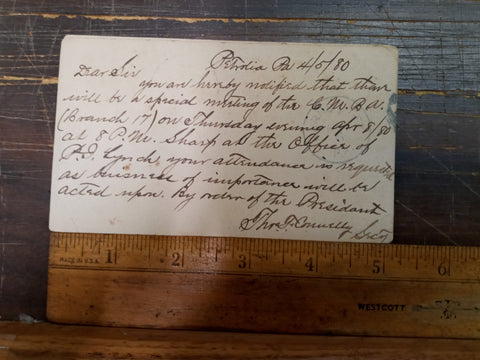 Petrolia Pa 4/5/80
Dear Sir
you are hereby notified that there
will be a special meeting of the C.M.B.A.
(Branch 17) on Thursday evening apr 8/80
at 8 P.M. Sharp at the Office of
P.J. Lynch, your attendance is requested
as business of importance will be
acted upon. By order of the President
Thos. P. Connelly Secy
MADE IN U.S.A.
1 2 3 4 5 6
WESTCOTT